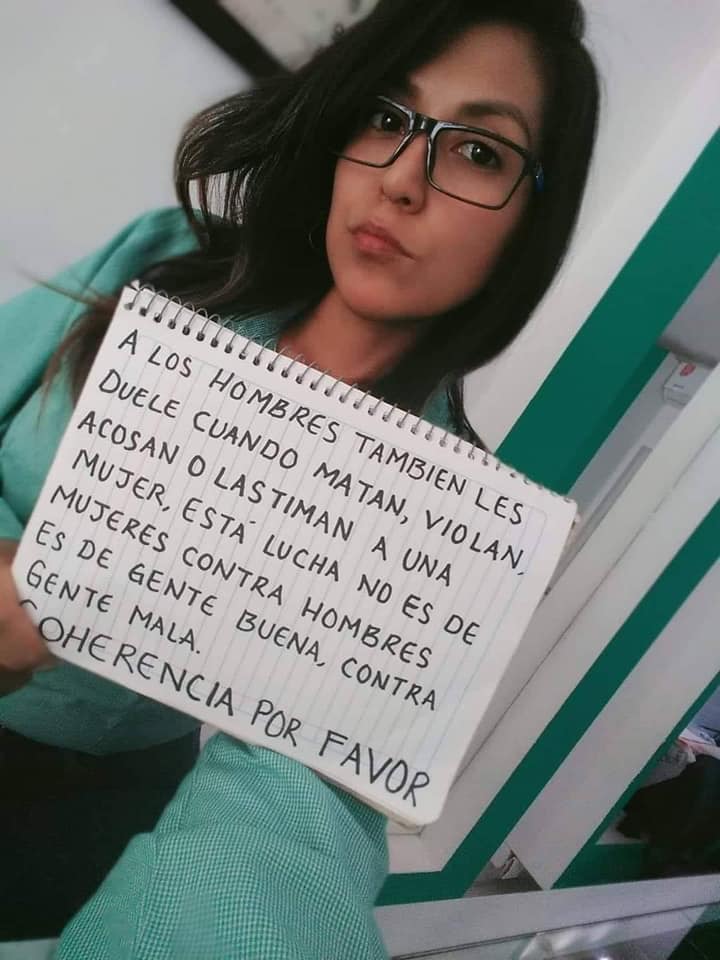 A LOS HOMBRES TAMBIEN LES
DUELE CUANDO MATAN, VIOLAN,
ACOSAN O LASTIMAN A UNA
MUJER, ESTÁ LUCHA NO ES DE
MUJERES CONTRA HOMBRES
ES DE GENTE BUENA, CONTRA
GENTE MALA.
COHERENCIA POR FAVOR